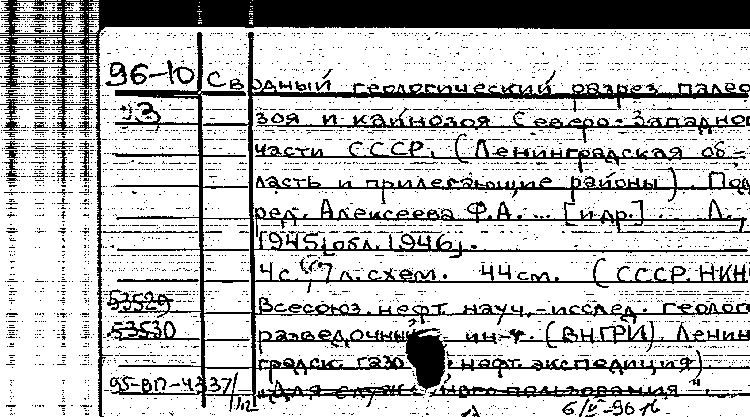 96-10 Сводный геологический разрез палео
зоя и кайнозоя Северо-Западной
части СССР. (Ленинградская об-
ласть и прилегающие районы). Под
ред. Алексеева Ф.А. ... [и др.]. Л.,
1945[обл. 1946].
4 с., 7 л. схем. 44 см. (СССР. НКН
53529 Всесоюз. нефт. науч.-исслед. геолог
53530 разведочный ин-т. (ВНГРИ). Ленин
градск. газо нефт. экспедиция).
95-ВП-4337/ "Для служебного пользования".